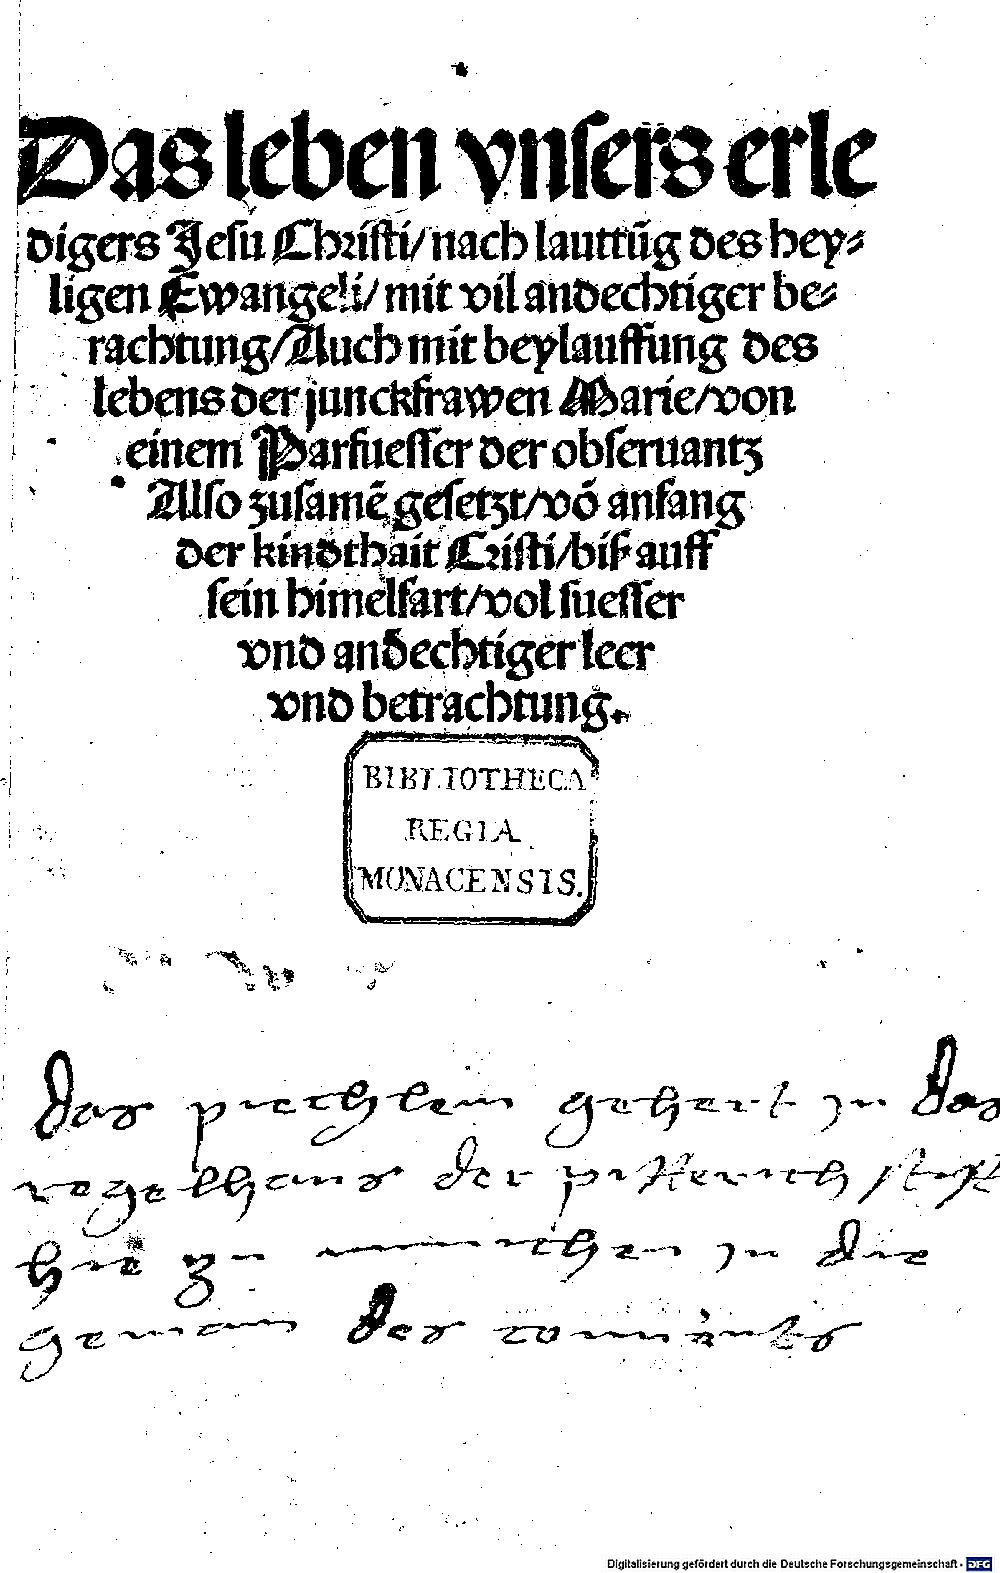 Das leben vnsers erle
digers Jesu Christi/ nach lauttũg des hey⸗
ligen Ewangeli/ mit vil andechtiger be⸗
rachtung/ Auch mit beylauffung des
lebens der junckfrawen Marie/ von
einem Parfuesser der obseruantz
Also zusamẽ gesetzt/ võ anfang
der kindthait Cristi/ biß auff
sein himelfart/ vol suesser
vnd andechtiger leer
vnd betrachtung.
BIBLIOTHECA
REGIA
MONACENSIS.
das piechlein gehert jn das
regelhaus der pitterich stift
hie zu munichen jn die
gemain des conuents
Digitalisierung gefördert durch die Deutsche Forschungsgemeinschaft - DFG